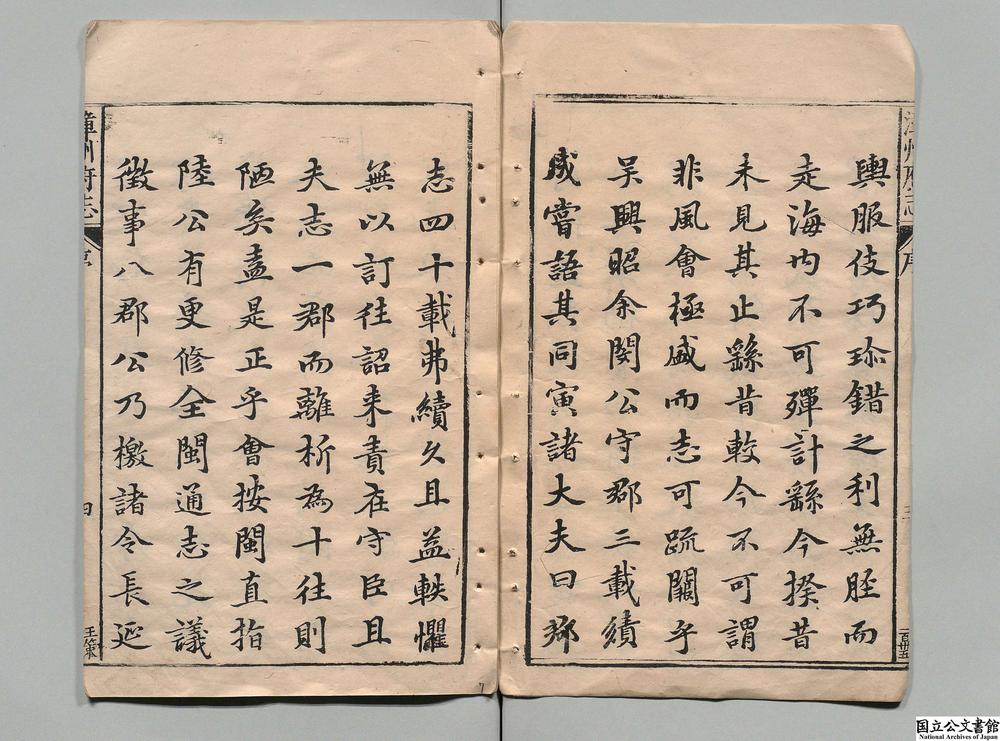 輿服伎巧琛錯之利無胫而
走海内不可殫計繇今揆昔
未見其止繇昔較今不可謂
非風會極盛而志可疏闊乎
吴興昭余閔公守郡三載績
成嘗語其同寅諸大夫曰郷
志四十載弗續久且益軼懼
無以訂往詔来責在守臣且
夫志一郡而離析為十往則
陋矣盍是正乎會按閩直指
陸公有更修全閩通志之議
徵事八郡公乃檄諸令長延
漳州府志
序
四
王策
漳州府志
序
国立公文書館
National Archives of Japan